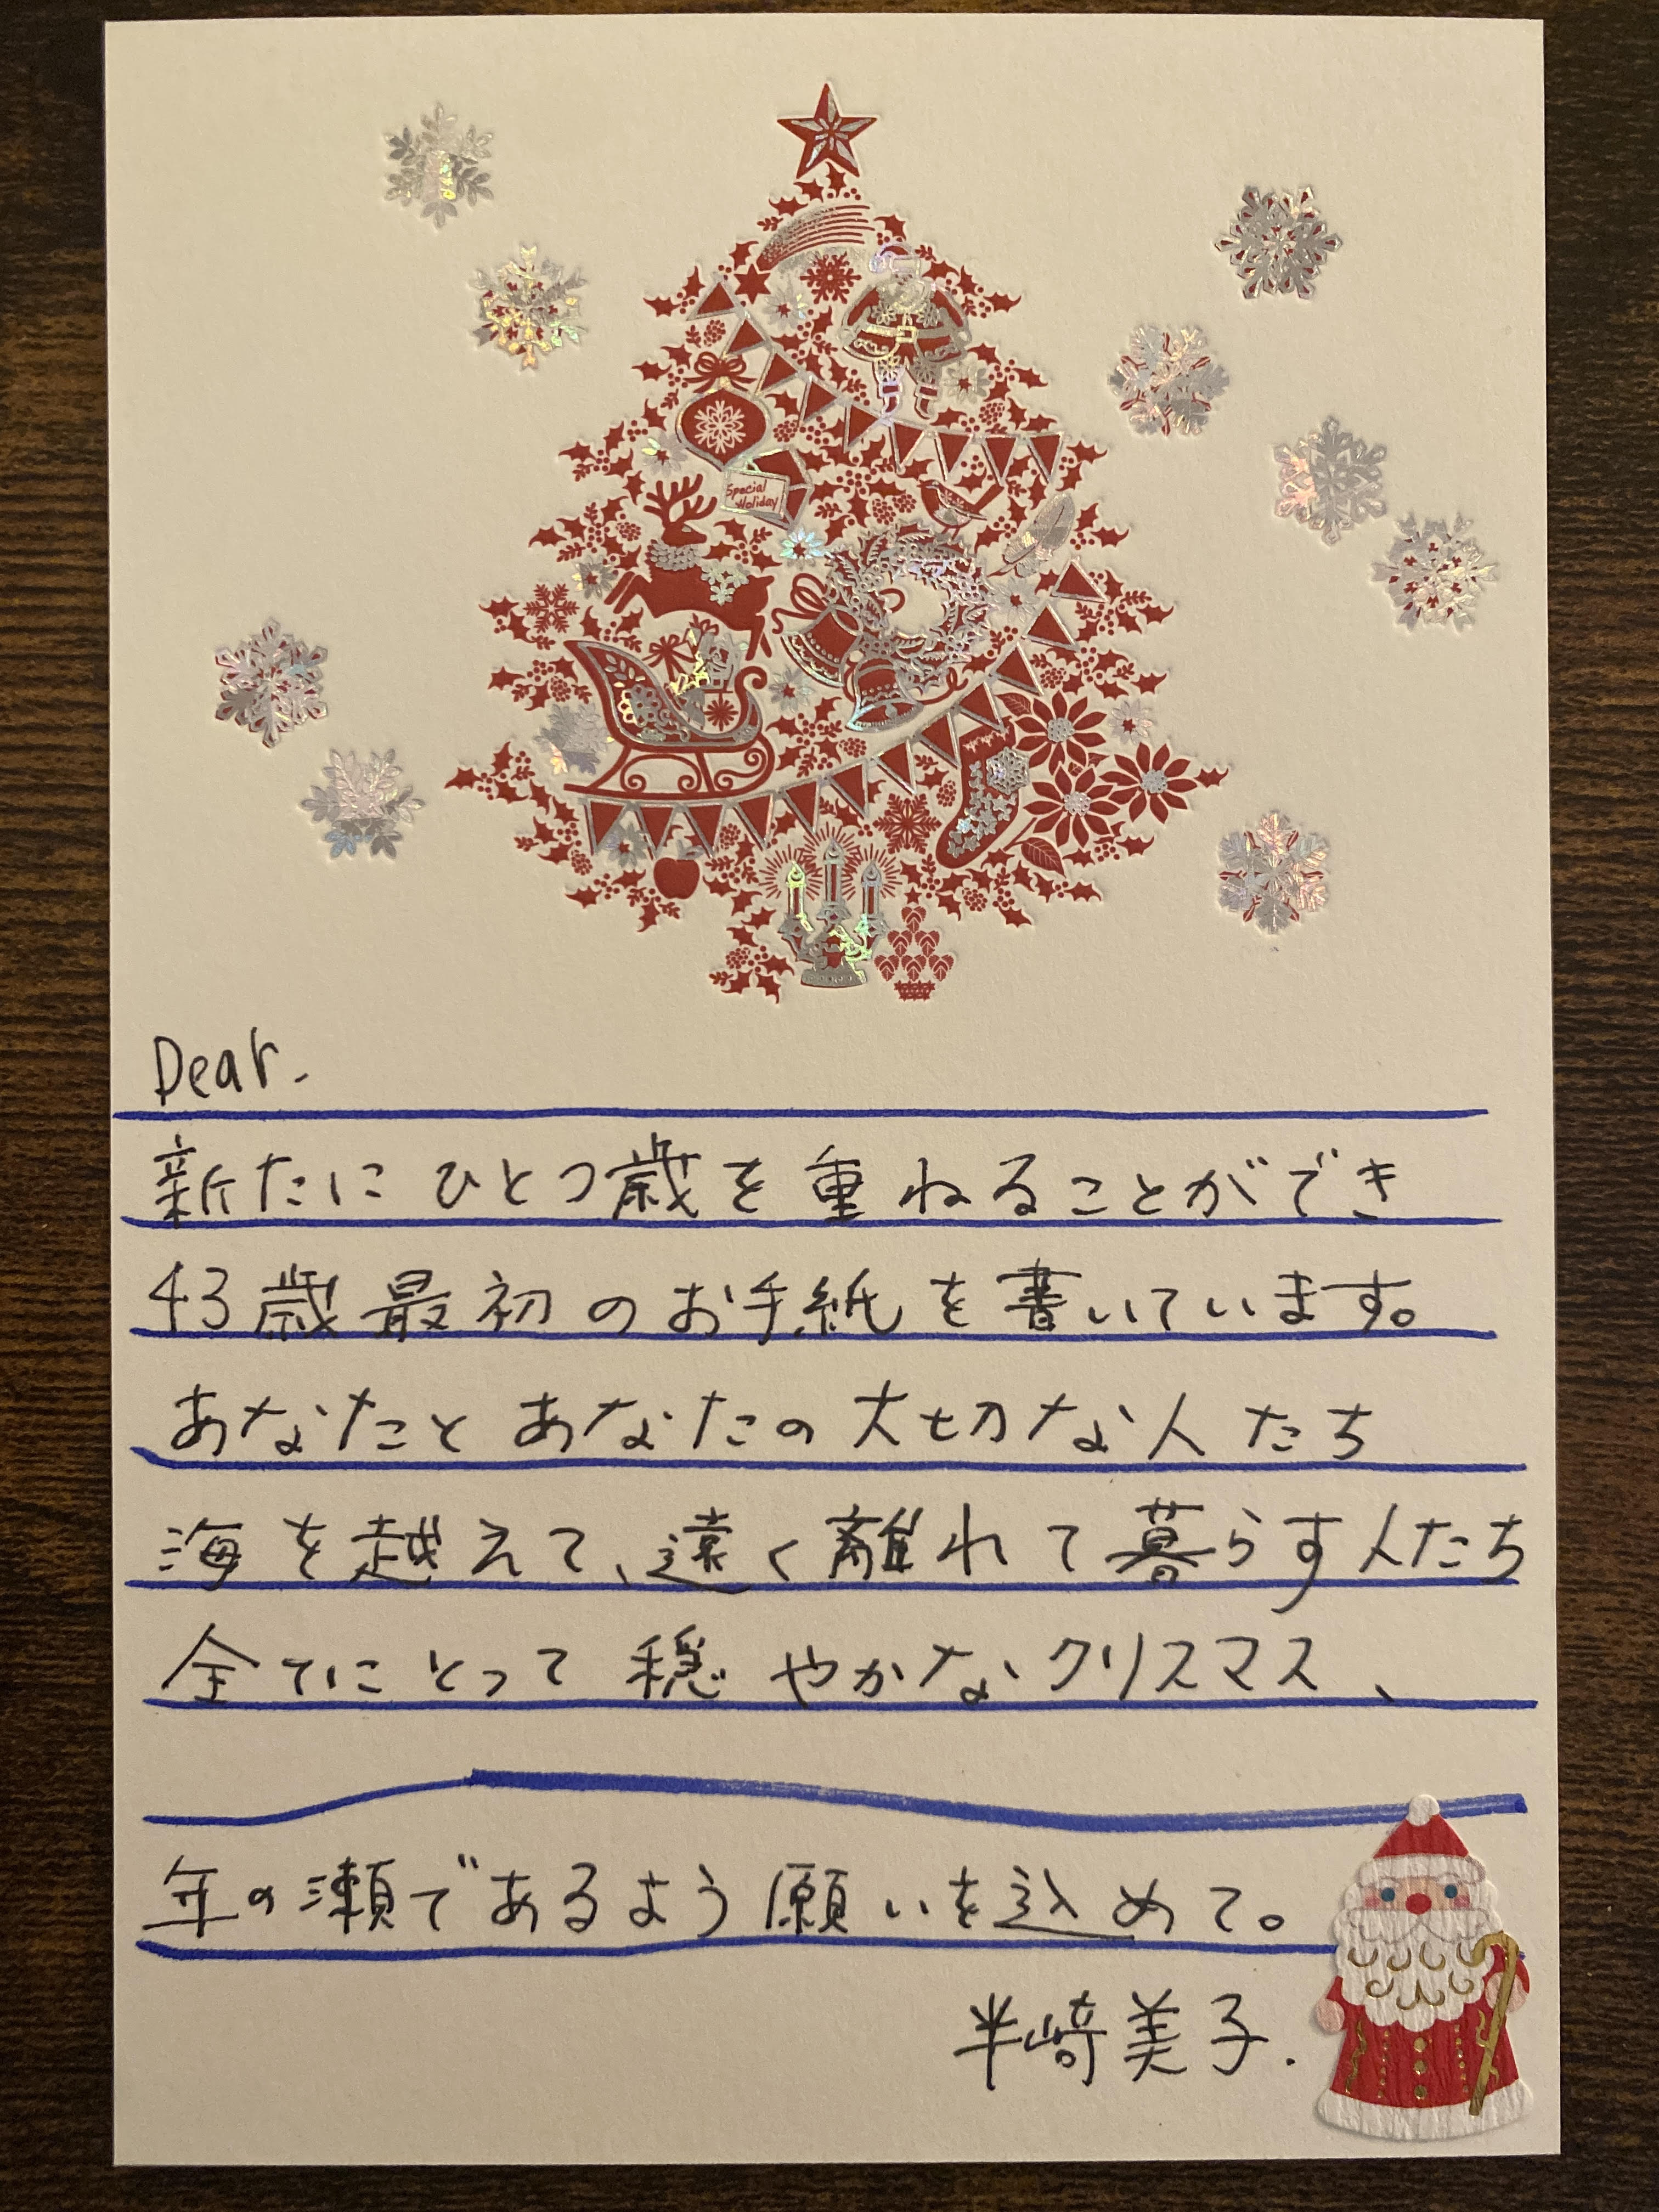 Special
Holiday
Dear.
新たに ひとつ歳を重ねることができ
43歳最初のお手紙を書いています。
あなたと あなたの大切な人たち
海を越えて、遠く離れて暮らす人たち
全てにとって 穏やかなクリスマス、
年の瀬であるよう願いを込めて。
半崎美子.